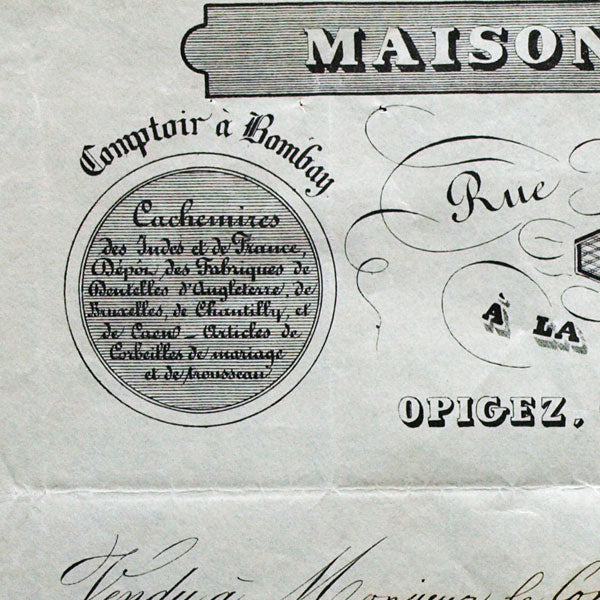 MAISON
Comptoir à Bombay
Cachemires
des Indes et de France,
Dépôt des Fabriques de
Dentelles d'Angleterre, de
Bruxelles, de Chantilly, et
de Caen _ Articles de
Corbeilles de mariage
et de trousseau
Rue
À LA
OPIGEZ,
Vendu à Monsieur le